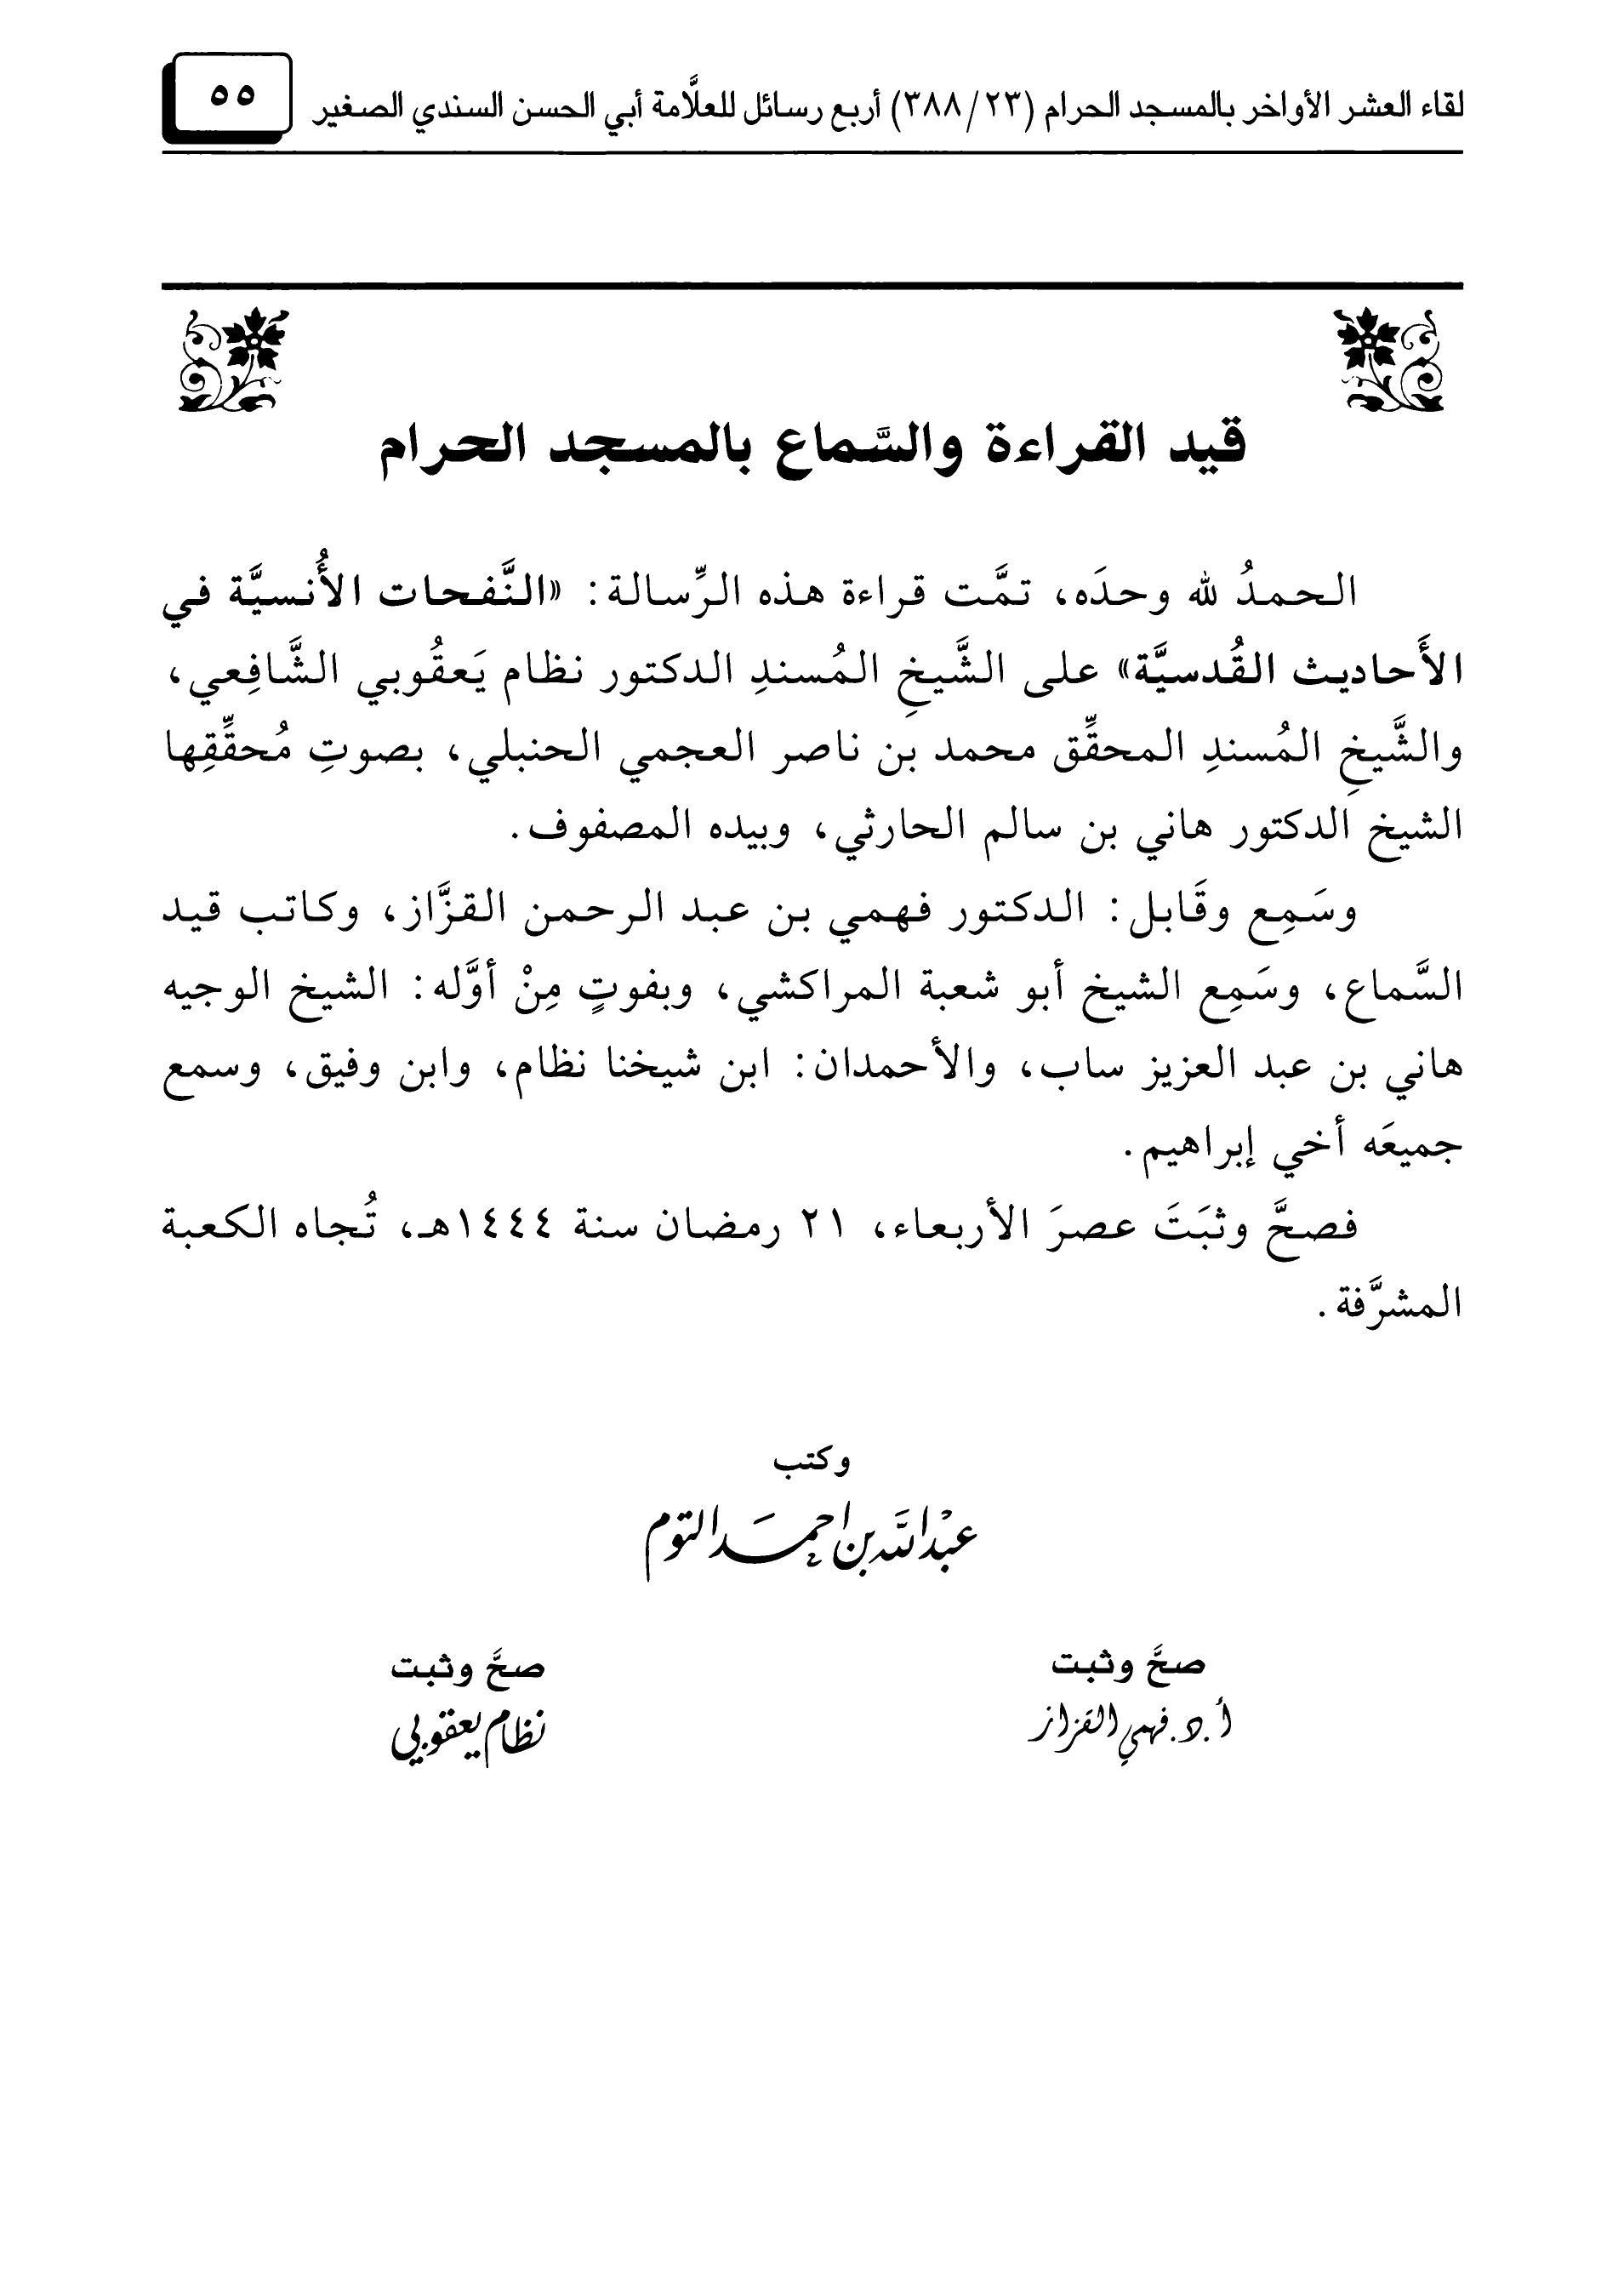 لقاء العشر الأواخر بالمسجد الحرام (٣٨٨/٢٣) أربع رسائل للعلَّامة أبي الحسن السندي الصغير ٥٥
قيد القراءة والسَّماع بالمسجد الحرام
الحمدُ لله وحدَه، تمَّت قراءة هذه الرِّسالة: «النَّفحات الأُنسيَّة في
الأَحاديث القُدسيَّة» على الشَّيخِ المُسندِ الدكتور نظام يَعقُوبي الشَّافِعي،
والشَّيخِ المُسندِ المحقِّق محمد بن ناصر العجمي الحنبلي، بصوتِ مُحقِّقِها
الشيخ الدكتور هاني بن سالم الحارثي، وبيده المصفوف.
وسَمِع وقَابل: الدكتور فهمي بن عبد الرحمن القزَّاز، وكاتب قيد
السَّماع، وسَمِع الشيخ أبو شعبة المراكشي، وبفوتٍ مِنْ أوَّله: الشيخ الوجيه
هاني بن عبد العزيز ساب، والأحمدان: ابن شيخنا نظام، وابن وفيق، وسمع
جميعَه أخي إبراهيم.
فصحَّ وثبَتَ عصرَ الأربعاء، ٢١ رمضان سنة ١٤٤٤هـ، تُجاه الكعبة
المشرَّفة.
وكتب
عبْد اللَّه بن احمَد التوم
صحَّ وثبت صحَّ وثبت
أ.د. فهمي القزاز نظام يعقوبي